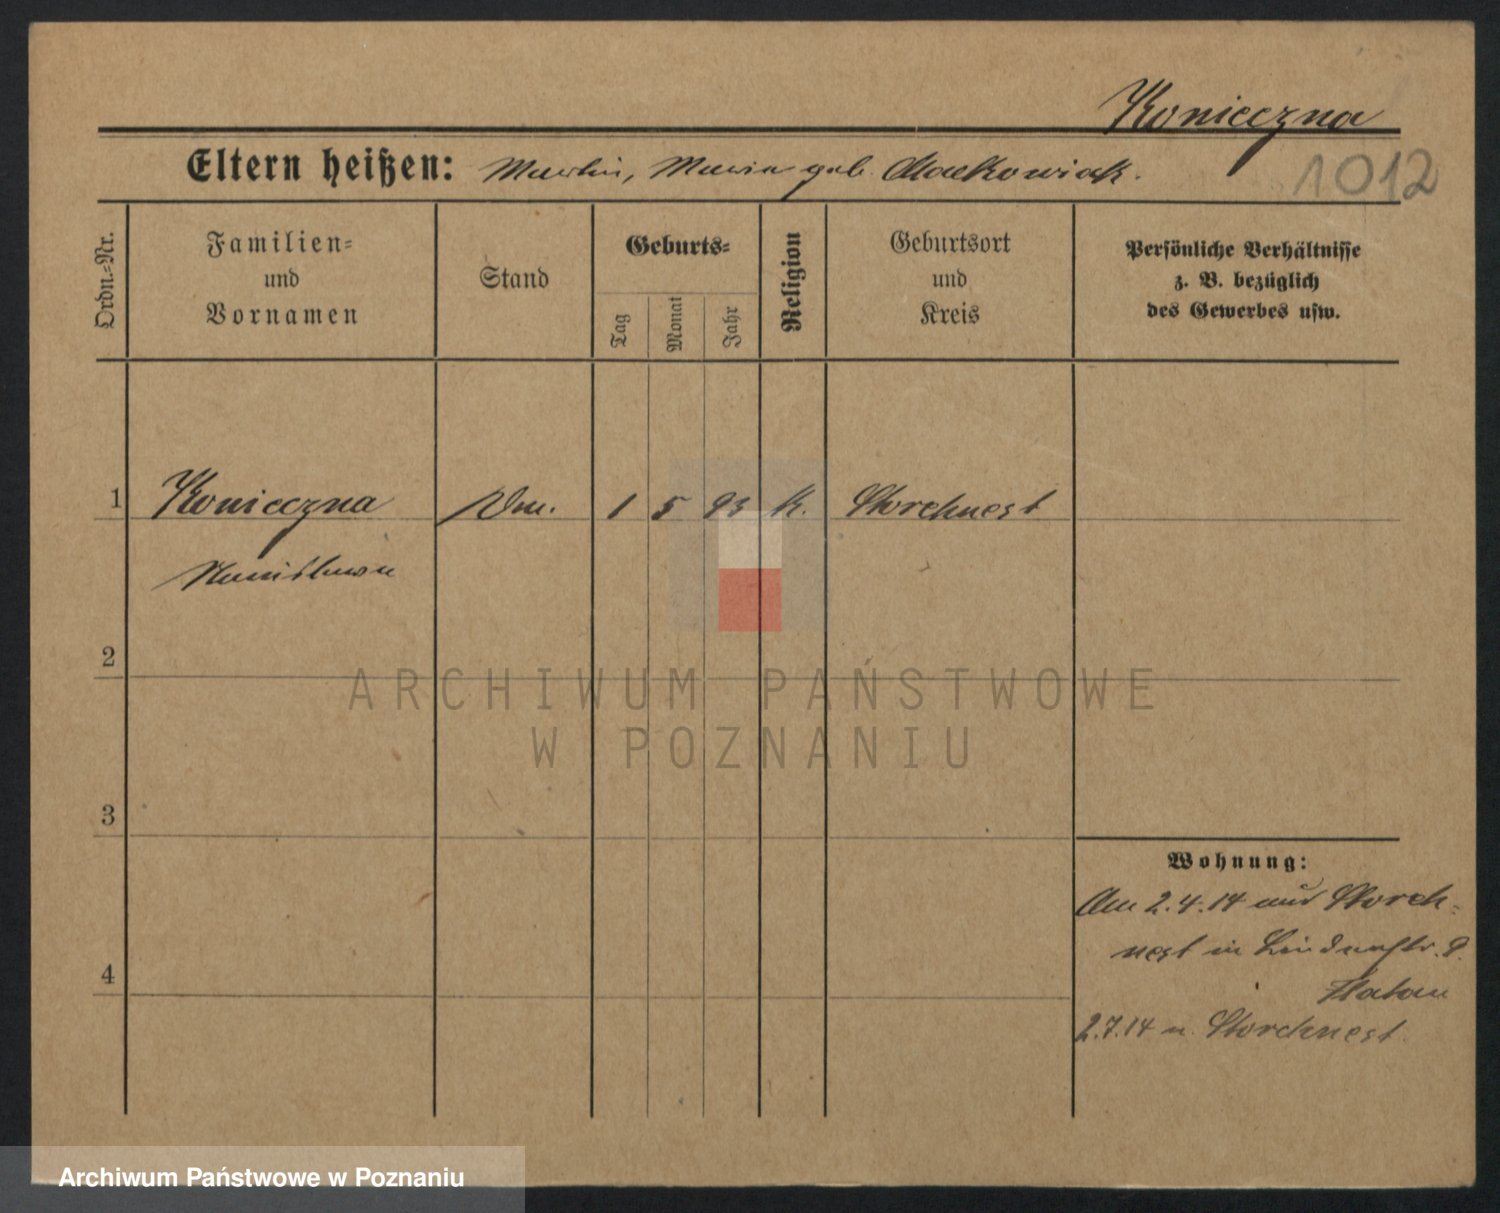 Konieczna
Eltern heißen: Martin, Maria geb. Maćkowiak.
1012
Ordn.-Nr.
Familien-
und
Vornamen
Stand
Geburts-
Tag
Monat
Jahr
Religion
Geburtsort
und
Kreis
Persönliche Verhältnisse
z. B. bezüglich
des Gewerbes usw.
1 Konieczna 1 5 93 k. Storchnest
Stanislawa
2
ARCHIWUM PAŃSTWOWE
W POZNANIU
3
4
Wohnung:
Am 2.4.14 aus Storch-
nest in Lindenstr. 9.
Flatau
2.7.14 n. Storchnest.
Archiwum Państwowe w Poznaniu